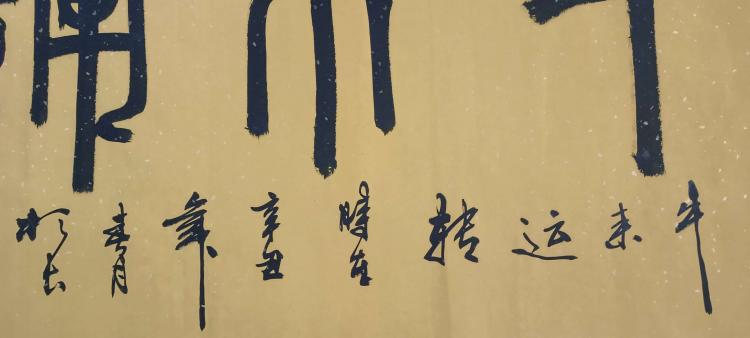 牛
来
运
转
時在
辛丑
年
春月